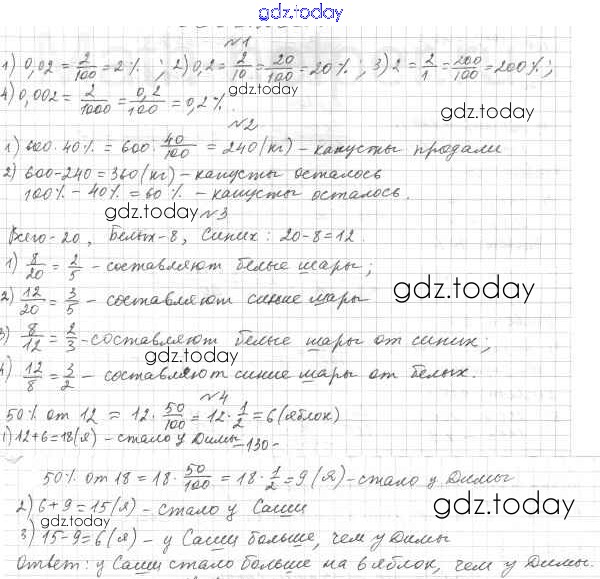 gdz.today
№1
1) 0,02 = 2/100 = 2% ; 2) 0,2 = 2/10 = 20/100 = 20% ; 3) 2 = 2/1 = 200/100 = 200% ;
gdz.today
4) 0,002 = 2/1000 = 0,2/100 = 0,2%.
gdz.today
№2
1) 600 · 40% = 600 · 40/100 = 240 (кг) – капусты продали
2) 600-240 = 360 (кг) – капусты осталось
100% – 40% = 60% – капусты осталось.
gdz.today №3
Всего - 20, Белых - 8, Синих : 20-8 = 12.
1) 8/20 = 2/5 – составляют белые шары ;
gdz.today
2) 12/20 = 3/5 – составляют синие шары
3) 8/12 = 2/3 – составляют белые шары от синих ;
gdz.today
4) 12/8 = 3/2 – составляют синие шары от белых.
№4
50% от 12 = 12 · 50/100 = 12 · 1/2 = 6 (яблок)
1) 12+6 = 18 (я) – стало у Димы
-130-
50% от 18 = 18 · 50/100 = 18 · 1/2 = 9 (я) – стало у Димы
2) 6+9 = 15 (я) – стало у Саши
gdz.today
gdz.today
3) 15-9 = 6 (я) – у Саши больше, чем у Димы
Ответ : у Саши стало больше на 6 яблок, чем у Димы.